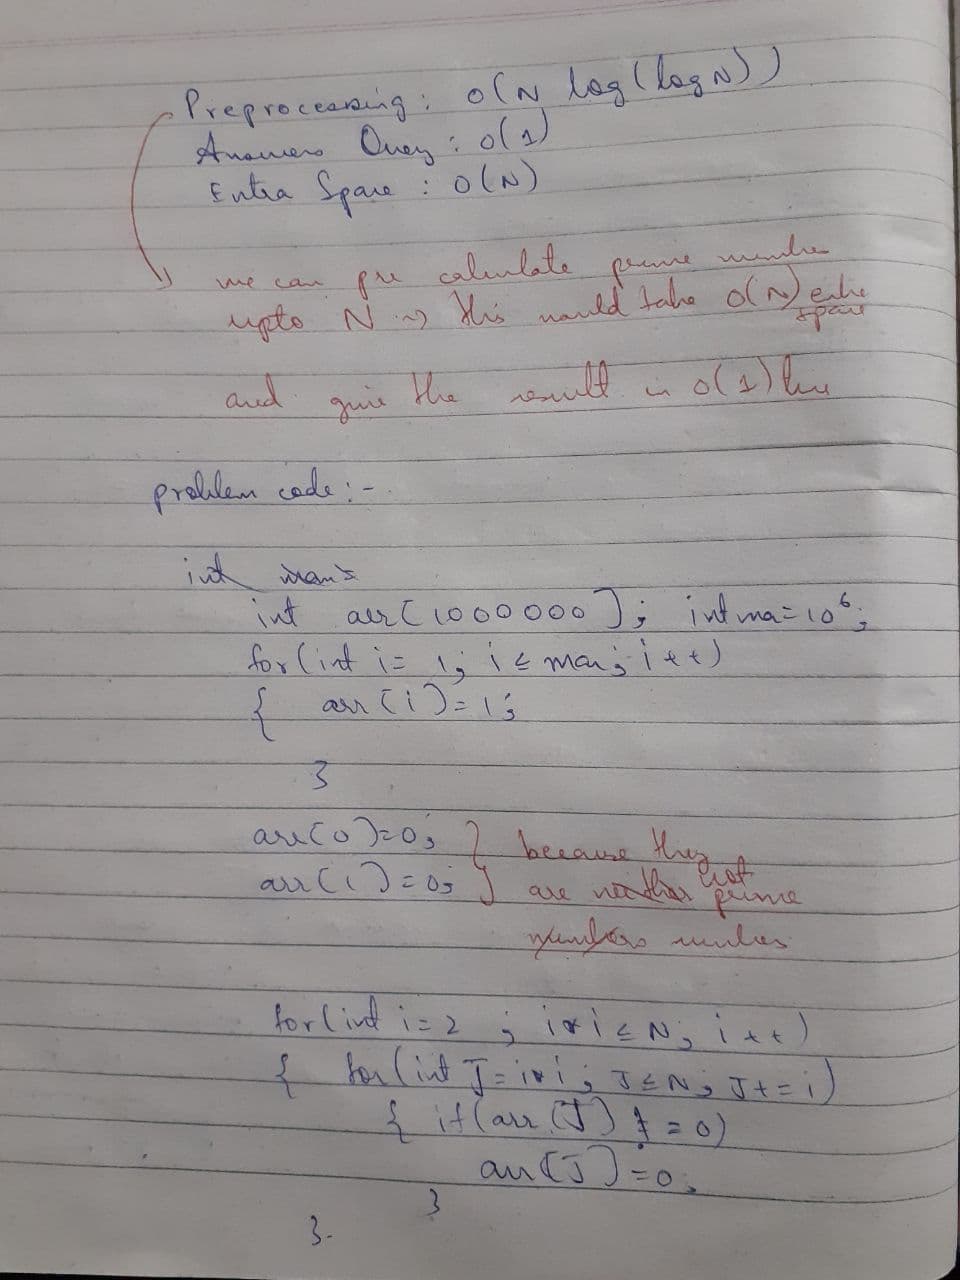 Preprocessing : O(N log(log N))
Answers Query : O(1)
Extra Space : O(N)
we can pre calculate prime number
upto N → this would take O(N) extra
space
and give the result in O(1) time
problem code :-
int
int arr[1000000]; int ma=10^6;
for(int i= 1; i ≤ max; i++)
{ arr[i]=1;
}
arr[0]=0; } because they
arr[1]=0; } are not prime
numbers
for(int i=2 ; i*i ≤ N; i++)
{ for(int J=i*i; J≤N; J+=i)
{ if(arr[J] != 0)
arr[J]=0;
}
}.